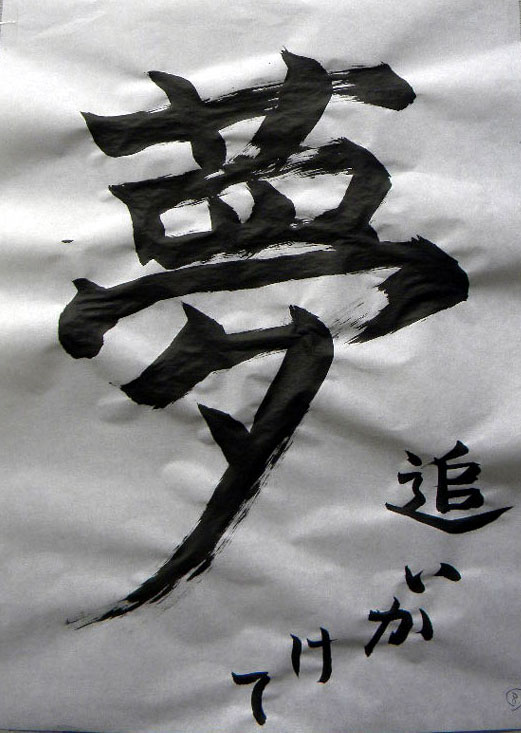 夢
追いかけて